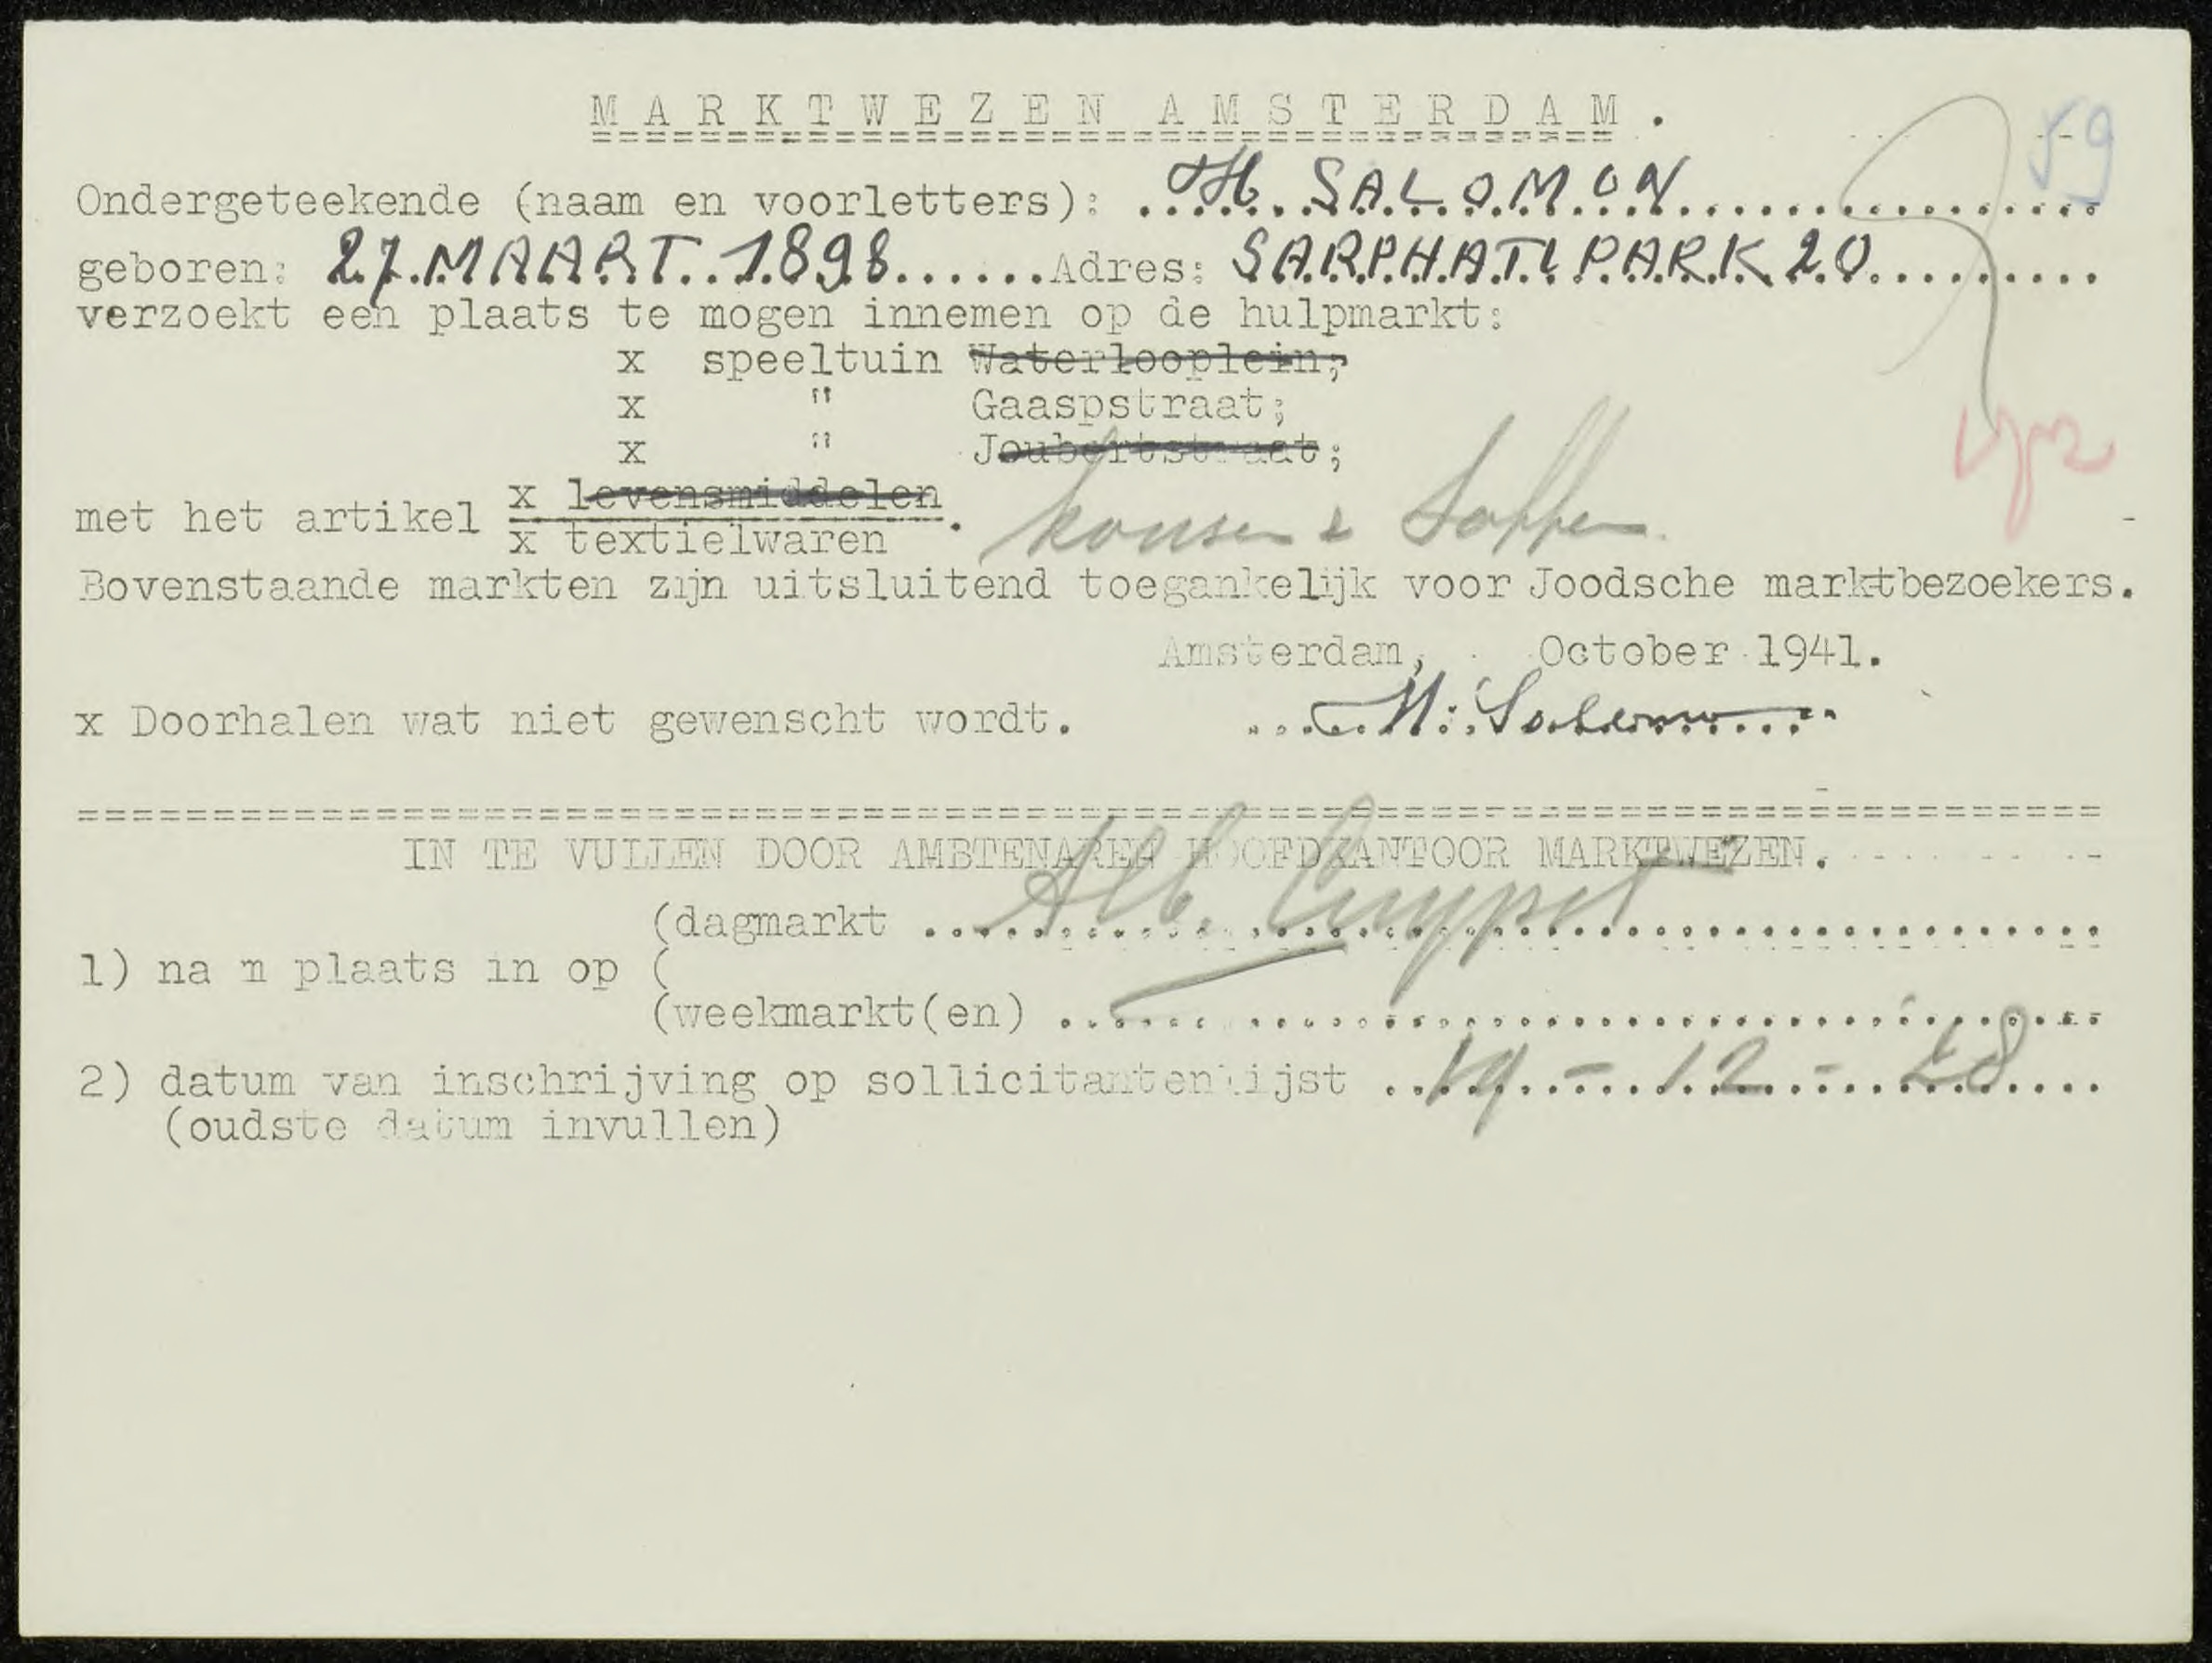 MARKTWEZEN AMSTERDAM.
59
Ondergeteekende (naam en voorletters): H. SALOMON
geboren: 27 MAART 1898 Adres: SARPHATI PARK 20
verzoekt een plaats te mogen innemen op de hulpmarkt:
x speeltuin Waterlooplein;
x " Gaaspstraat;
x " Joubertstraat;
met het artikel x levensmiddelen
x textielwaren . kousen & Soffen
Bovenstaande markten zijn uitsluitend toegankelijk voor Joodsche marktbezoekers.
Amsterdam, October 1941.
x Doorhalen wat niet gewenscht wordt. H. Salomon
IN TE VULLEN DOOR AMBTENAREN HOOFDKANTOOR MARKTWEZEN.
(dagmarkt Alb. Cuypst
1) na m plaats in op (
(weekmarkt(en)
2) datum van inschrijving op sollicitantenlijst 19-12-28
(oudste datum invullen)